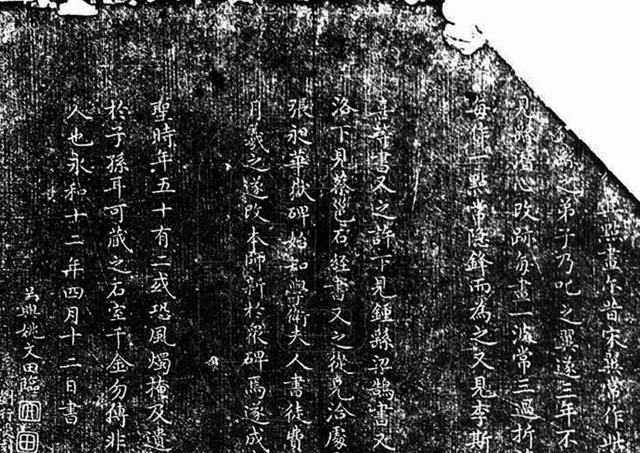 點畫尔昔宋翼常作此
之弟子乃叱之翼遂三年不
見繇潛心改跡每畫一波常三過折
每作一點常隱鋒而為之又見李斯
喜等書又之許下見鍾繇梁鵠書又
洛下見蔡邕石經書又之從兄洽處
張昶華嶽碑始知學衛夫人書徒費
月羲之遂改本師新於眾碑焉遂成
聖時年五十有二或恐風燭掩及遺
於子孫耳可蔵之石室千金勿傳非
人也永和十二年四月十二日書
吳興姚文田臨